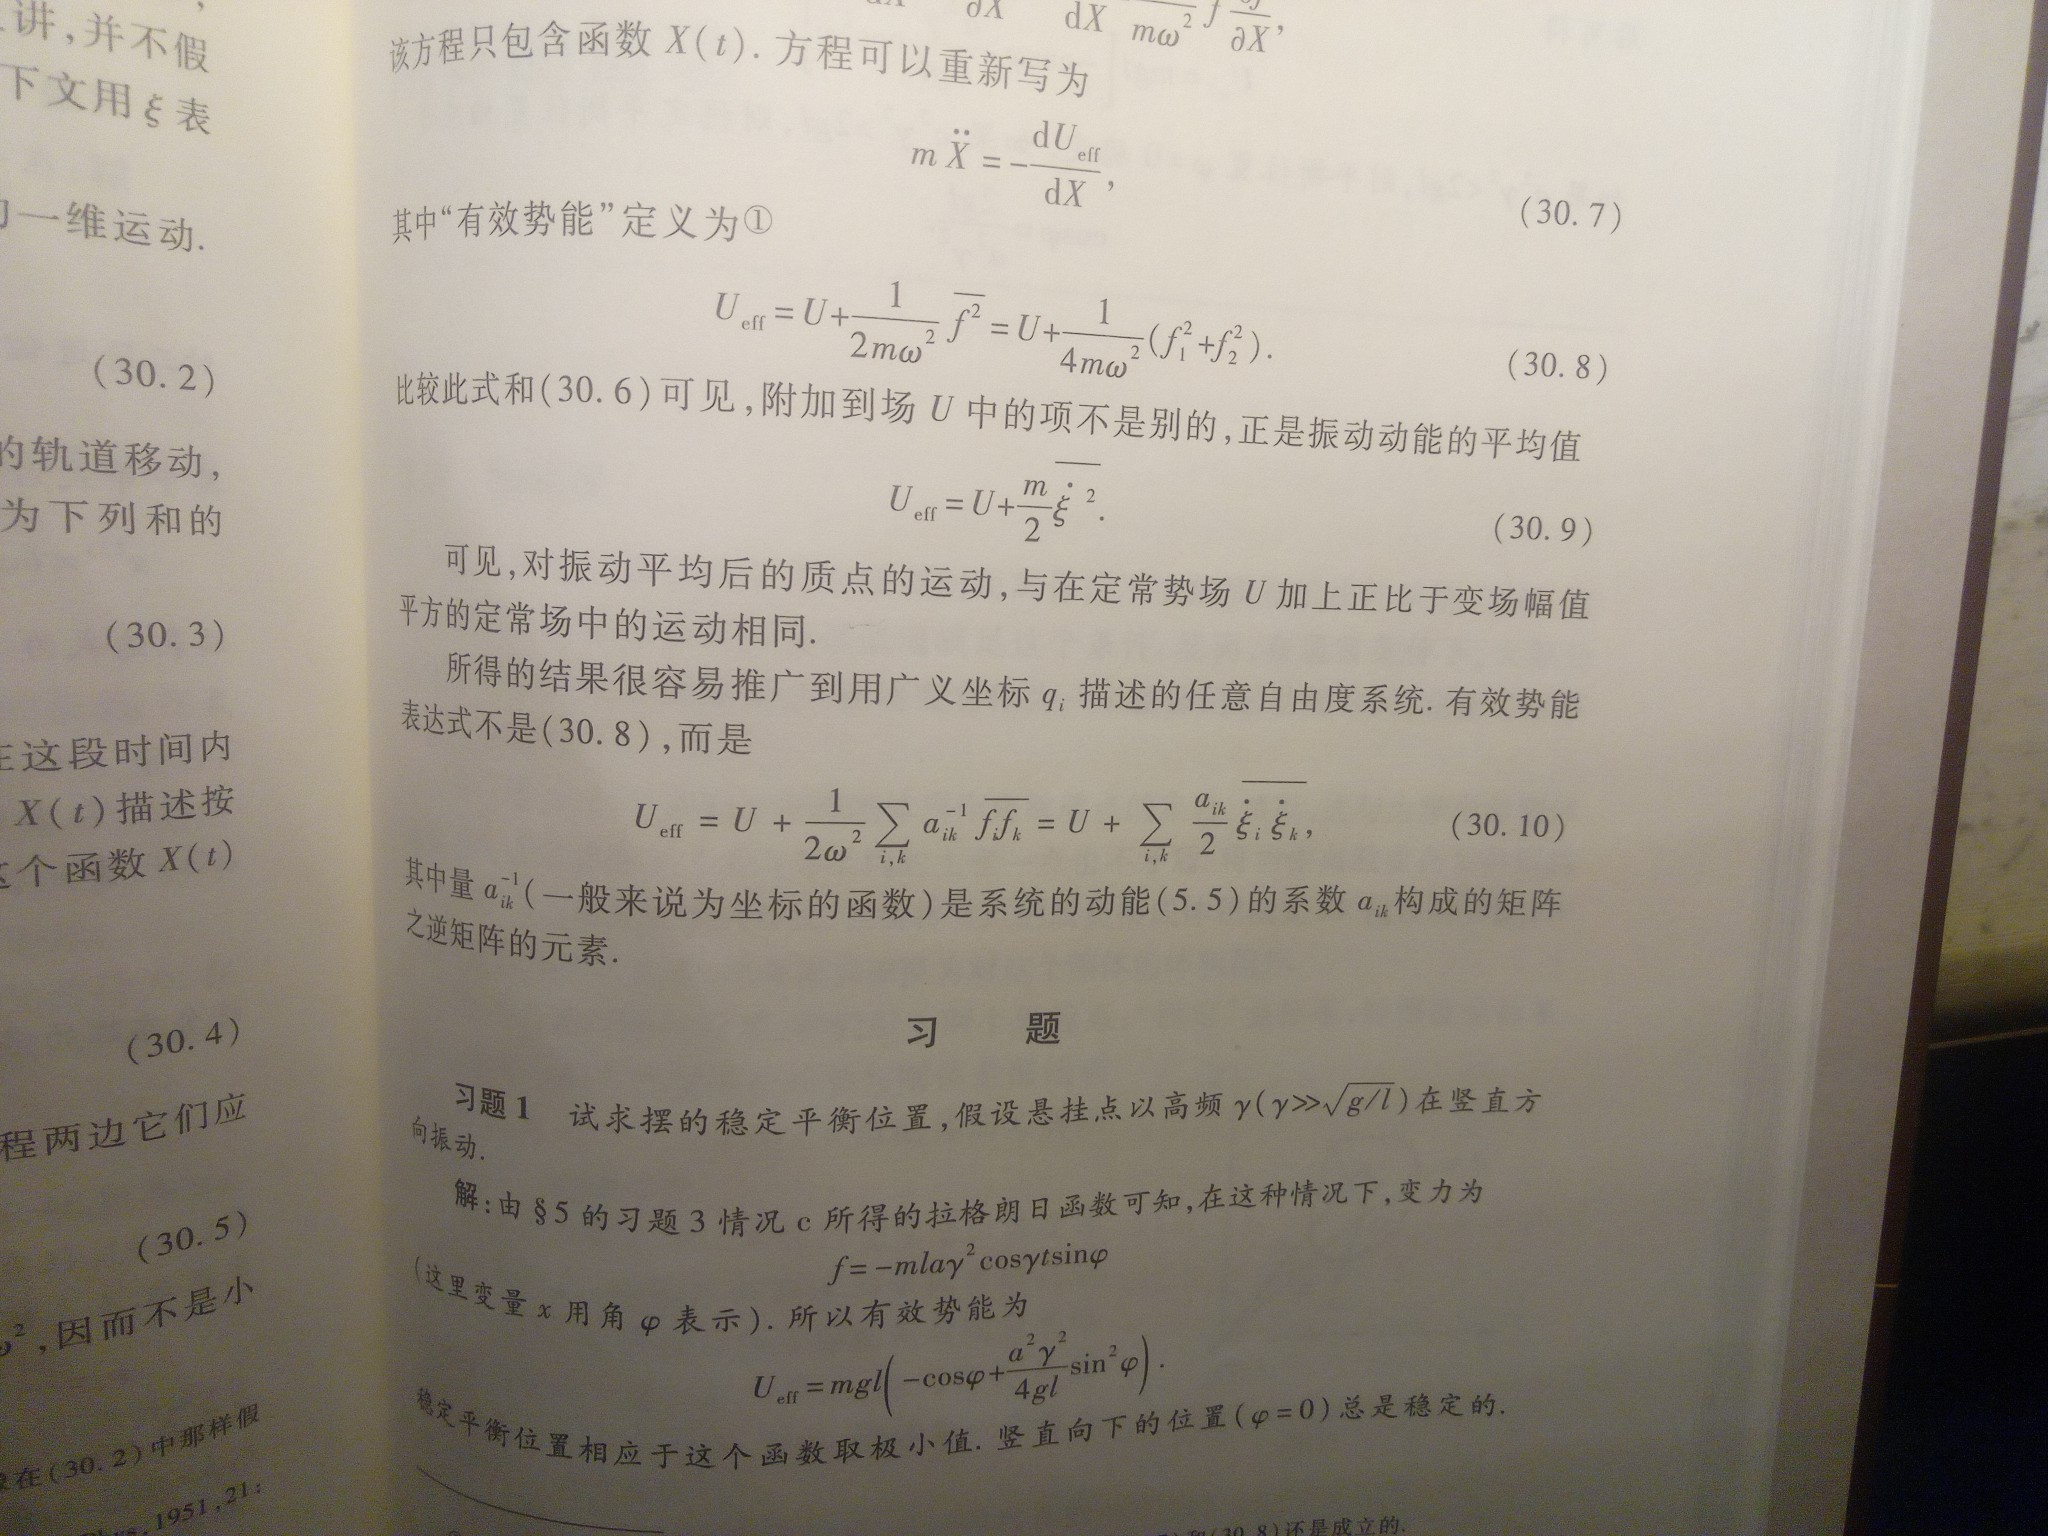 讲,并不假
下文用 ξ 表
一维运动.
(30.2)
的轨道移动,
为下列和的
(30.3)
这段时间内
X(t)描述按
个函数 X(t)
(30.4)
程两边它们应
(30.5)
,因而不是小
在(30.2)中那样假
1951,21:
该方程只包含函数 X(t). 方程可以重新写为
m Ẍ = -dU_eff/dX, (30.7)
其中“有效势能”定义为①
U_eff = U + 1/(2mω²) \overline{f²} = U + 1/(4mω²) (f₁²+f₂²). (30.8)
比较此式和(30.6)可见,附加到场 U 中的项不是别的,正是振动动能的平均值
U_eff = U + m/2 \overline{ξ̇²}. (30.9)
可见,对振动平均后的质点的运动,与在定常势场 U 加上正比于变场幅值
平方的定常场中的运动相同.
所得的结果很容易推广到用广义坐标 q_i 描述的任意自由度系统. 有效势能
表达式不是(30.8),而是
U_eff = U + 1/(2ω²) ∑_{i,k} a_{ik}^{-1} \overline{f_i f_k} = U + ∑_{i,k} a_{ik}/2 \overline{ξ̇_i ξ̇_k}, (30.10)
其中量 a_{ik}^{-1}(一般来说为坐标的函数)是系统的动能(5.5)的系数 a_{ik}构成的矩阵
之逆矩阵的元素.
习 题
习题 1 试求摆的稳定平衡位置,假设悬挂点以高频 γ(γ≫√(g/l))在竖直方
向振动.
解:由 §5 的习题 3 情况 c 所得的拉格朗日函数可知,在这种情况下,变力为
f=-mlaγ²cosγtsinφ
(这里变量 x 用角 φ 表示). 所以有效势能为
U_eff = mgl( -cosφ + a²γ²/(4gl) sin²φ ).
稳定平衡位置相应于这个函数取极小值. 竖直向下的位置(φ=0)总是稳定的.
(30.8)还是成立的.